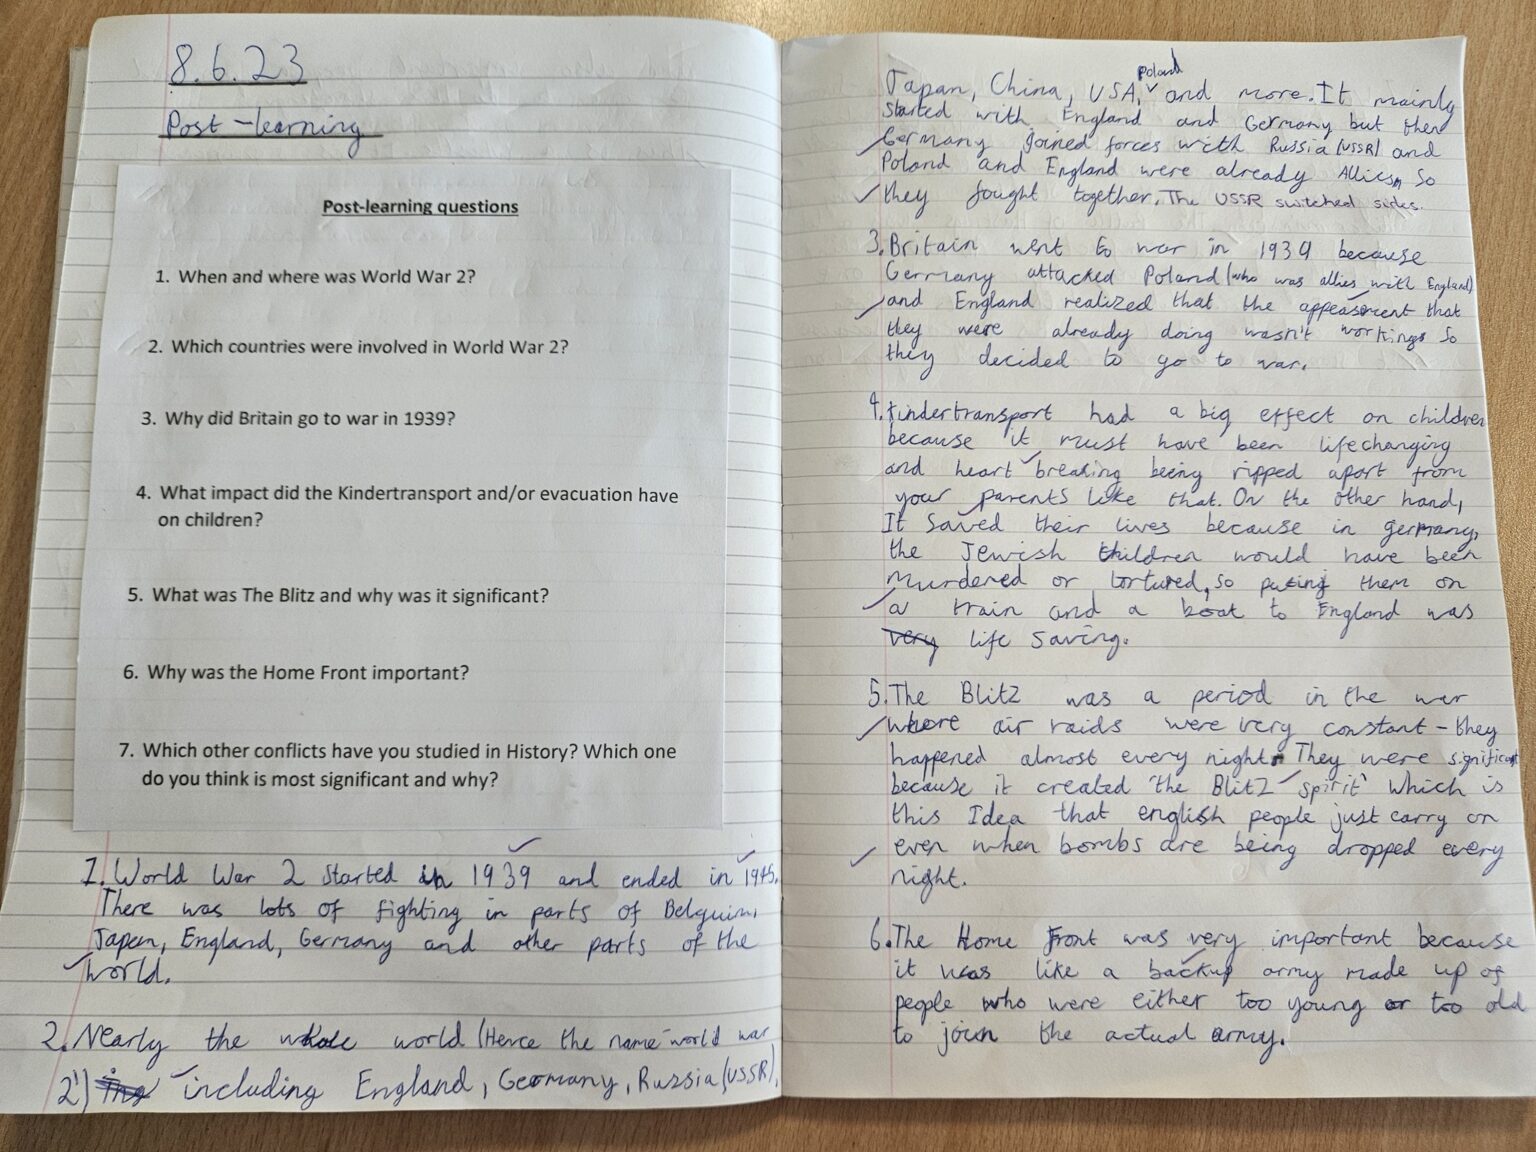 8.6.23
Post-learning
Post-learning questions
1. When and where was World War 2?
2. Which countries were involved in World War 2?
3. Why did Britain go to war in 1939?
4. What impact did the Kindertransport and/or evacuation have
on children?
5. What was The Blitz and why was it significant?
6. Why was the Home Front important?
7. Which other conflicts have you studied in History? Which one
do you think is most significant and why?
1. World War 2 started in 1939 and ended in 1945.
There was lots of fighting in parts of Belguim,
Japan, England, Germany and other parts of the
world.
2. Nearly the whole world (Hence the name 'world war
2') including England, Germany, Russia (USSR),
Japan, China, USA, Poland and more. It mainly
started with England and Germany but then
Germany joined forces with Russia (USSR) and
Poland and England were already Allies, so
they fought together. The USSR switched sides.
3. Britain went to war in 1939 because
Germany attacked Poland (who was allies with England)
and England realized that the appeasement that
they were already doing wasn't working so
they decided to go to war.
4. Kindertransport had a big effect on children
because it must have been lifechanging
and heart breaking being ripped apart from
your parents like that. On the other hand,
It saved their lives because in germany,
the Jewish children would have been
murdered or tortured, so puting them on
a train and a boat to England was
very life saving.
5. The Blitz was a period in the war
where air raids were very constant - they
happened almost every night. They were significant
because it created the 'Blitz spirit' which is
this Idea that english people just carry on
even when bombs are being dropped every
night.
6. The Home Front was very important because
it was like a backup army made up of
people who were either too young or too old
to join the actual army.